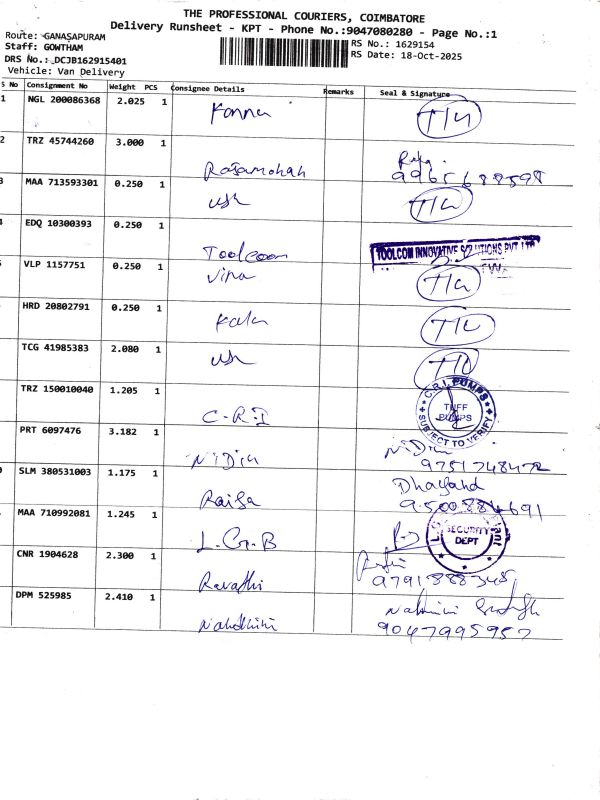 THE PROFESSIONAL COURIERS, COIMBATORE
Delivery Runsheet - KPT - Phone No.:9047080280 - Page No.:1
Route: GANASAPURAM
RS No.: 1629154
Staff: GOWTHAM
RS Date: 18-Oct-2025
DRS No.: DCJB162915401
Vehicle: Van Delivery
S No Consignment No Weight PCS Consignee Details Remarks Seal & Signature
1 NGL 200086368 2.025 1 Kanna T/U
2 TRZ 45744260 3.000 1 Rajamohan Raja.
9965688598
3 MAA 713593301 0.250 1 ush T/U
EDQ 10300393 0.250 1 Toolcom TOOLCOM INNOVATIVE SOLUTIONS PVT LTD
VLP 1157751 0.250 1 Vipa T/U
HRD 20802791 0.250 1 Kala T/U
TCG 41985383 2.080 1 ush T/U
TRZ 150010040 1.205 1 C-R-I C.R.I. PUMPS
TUFF
PUMPS
SUBJECT TO VERIFY
PRT 6097476 3.182 1 NiDin NiDin
9751748472
SLM 380531003 1.175 1 Raiya Dhayand
9500884691
MAA 710992081 1.245 1 L.G.B SECURITY
DEPT
CNR 1904628 2.300 1 Revathi
9791888348
DPM 525985 2.410 1 Nandhini Nandhini
9047995957